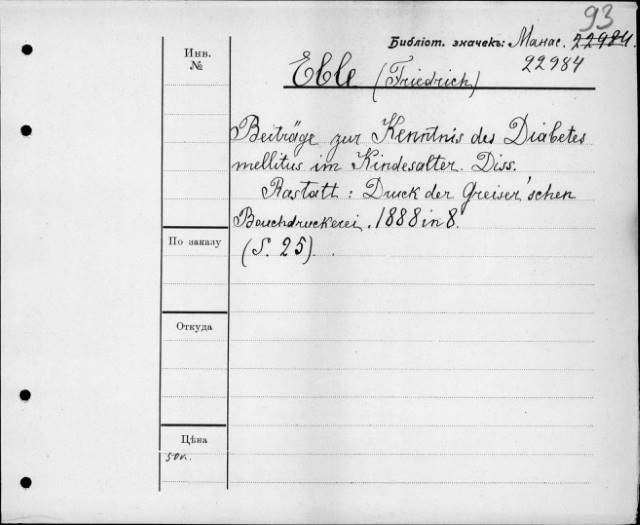 93
Библіот. значекъ: Манас. 22984.
22984
Инв.
№
Eble (Friedrich)
Beiträge zur Kenntnis des Diabetes
mellitus im Kindesalter. Diss.
Rastatt: Druck der Greiser'schen
Bouchdruckerei. 1888 in 8.
По заказу
(S. 25).
Откуда
Цѣна
50к.